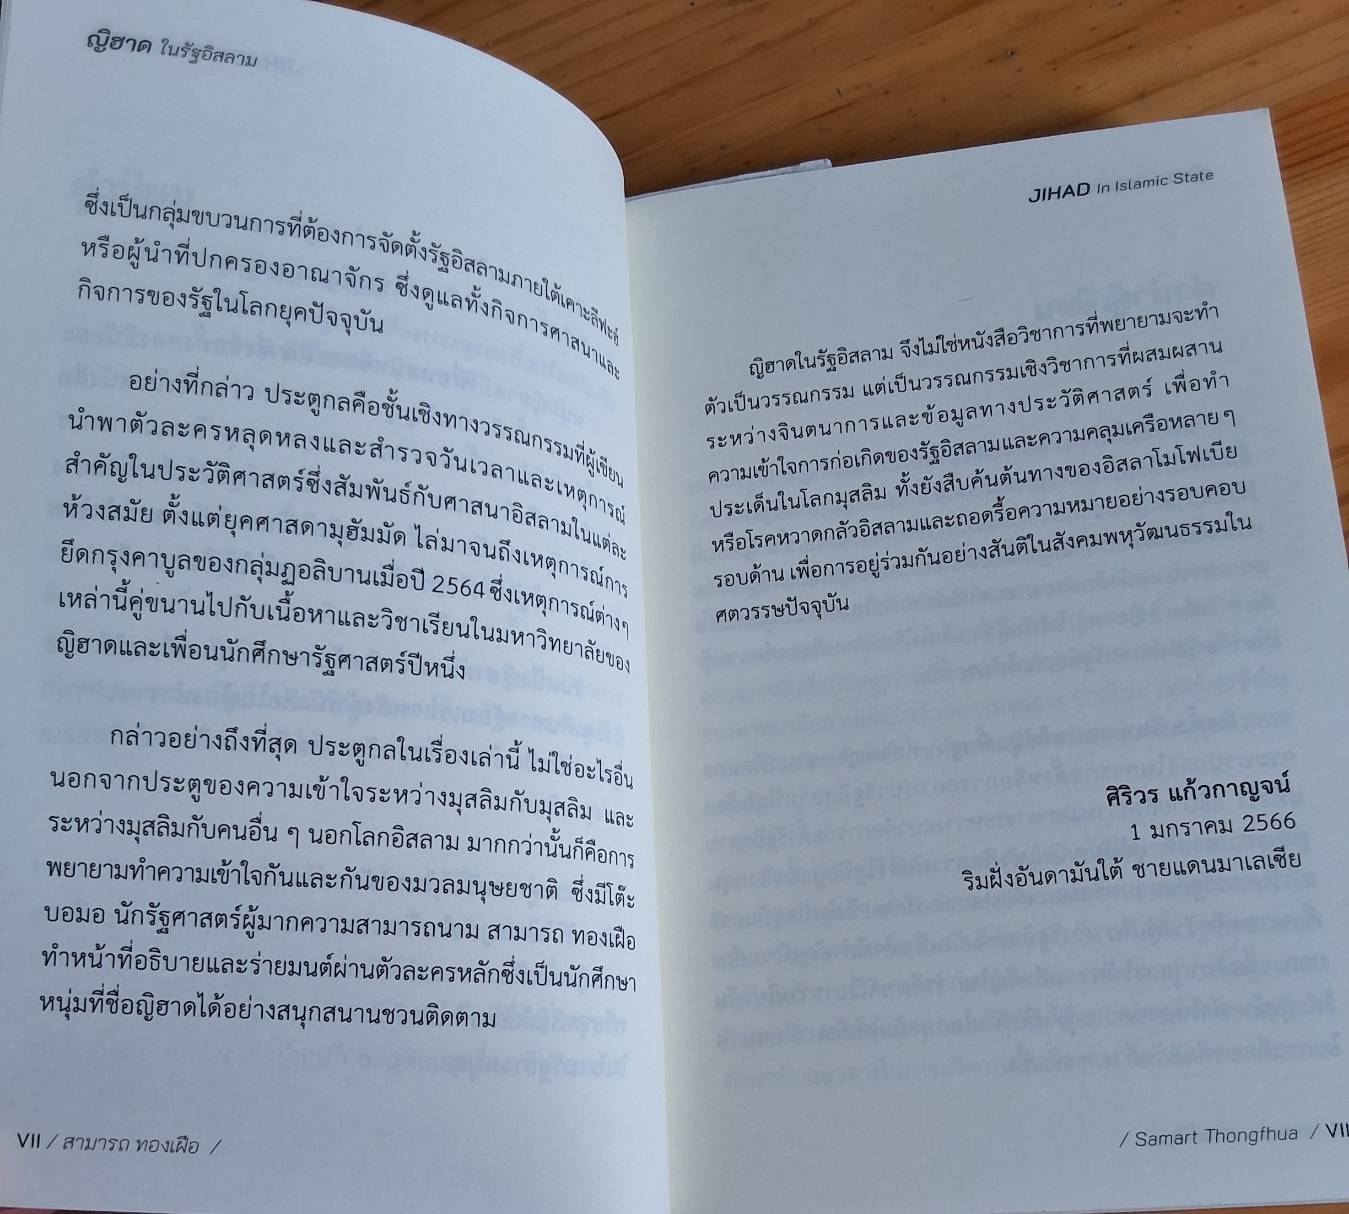 ญิฮาด ในรัฐอิสลาม
ซึ่งเป็นกลุ่มขบวนการที่ต้องการจัดตั้งรัฐอิสลามภายใต้เคาะลีฟะฮ์
หรือผู้นำที่ปกครองอาณาจักร ซึ่งดูแลทั้งกิจการศาสนาและ
กิจการของรัฐในโลกยุคปัจจุบัน
อย่างที่กล่าว ประตูกลคือชั้นเชิงทางวรรณกรรมที่ผู้เขียน
นำพาตัวละครหลุดหลงและสำรวจวันเวลาและเหตุการณ์
สำคัญในประวัติศาสตร์ซึ่งสัมพันธ์กับศาสนาอิสลามในแต่ละ
ห้วงสมัย ตั้งแต่ยุคศาสดามุฮัมมัด ไล่มาจนถึงเหตุการณ์การ
ยึดกรุงคาบูลของกลุ่มฏอลิบานเมื่อปี 2564 ซึ่งเหตุการณ์ต่างๆ
เหล่านี้คู่ขนานไปกับเนื้อหาและวิชาเรียนในมหาวิทยาลัยของ
ญิฮาดและเพื่อนนักศึกษารัฐศาสตร์ปีหนึ่ง
กล่าวอย่างถึงที่สุด ประตูกลในเรื่องเล่านี้ ไม่ใช่อะไรอื่น
นอกจากประตูของความเข้าใจระหว่างมุสลิมกับมุสลิม และ
ระหว่างมุสลิมกับคนอื่น ๆ นอกโลกอิสลาม มากกว่านั้นก็คือการ
พยายามทำความเข้าใจกันและกันของมวลมนุษยชาติ ซึ่งมีโต๊ะ
บอมอ นักรัฐศาสตร์ผู้มากความสามารถนาม สามารถ ทองเฝือ
ทำหน้าที่อธิบายและร่ายมนต์ผ่านตัวละครหลักซึ่งเป็นนักศึกษา
หนุ่มที่ชื่อญิฮาดได้อย่างสนุกสนานชวนติดตาม
VII / สามารถ ทองเฝือ /
JIHAD In Islamic State
ญิฮาดในรัฐอิสลาม จึงไม่ใช่หนังสือวิชาการที่พยายามจะทำ
ตัวเป็นวรรณกรรม แต่เป็นวรรณกรรมเชิงวิชาการที่ผสมผสาน
ระหว่างจินตนาการและข้อมูลทางประวัติศาสตร์ เพื่อทำ
ความเข้าใจการก่อเกิดของรัฐอิสลามและความคลุมเครือหลาย ๆ
ประเด็นในโลกมุสลิม ทั้งยังสืบค้นต้นทางของอิสลาโมโฟเบีย
หรือโรคหวาดกลัวอิสลามและถอดรื้อความหมายอย่างรอบคอบ
รอบด้าน เพื่อการอยู่ร่วมกันอย่างสันติในสังคมพหุวัฒนธรรมใน
ศตวรรษปัจจุบัน
ศิริวร แก้วกาญจน์
1 มกราคม 2566
ริมฝั่งอันดามันใต้ ชายแดนมาเลเซีย
/ Samart Thongfhua / VII